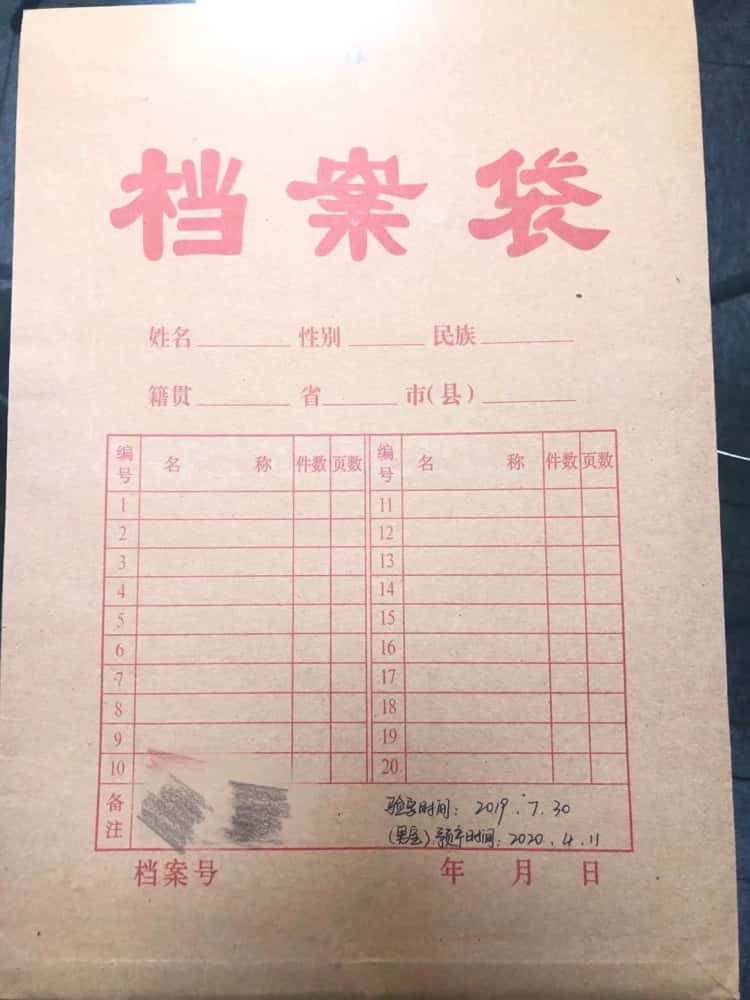 档案袋
姓名 性别 民族
籍贯 省 市(县)
编号 名称 件数 页数 编号 名称 件数 页数
1 11
2 12
3 13
4 14
5 15
6 16
7 17
8 18
9 19
10 20
备注 验孕时间：2019.7.30
(男宝)预产时间：2020.4.11
档案号 年 月 日